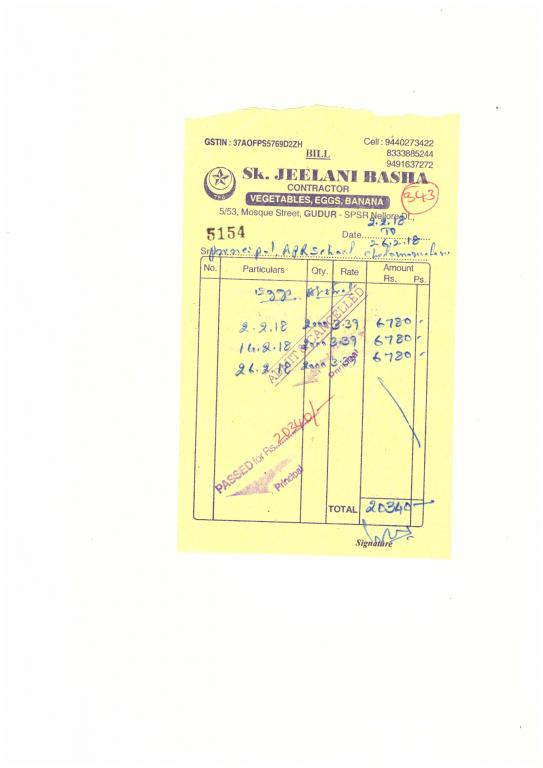 GSTIN : 37AOFPS5769D2ZH
Cell : 9440273422
BILL
8333885244
9491637272
Sk. JEELANI BASHA
CONTRACTOR
343
VEGETABLES, EGGS, BANANA
5/53, Mosque Street, GUDUR - SPSR Nellore Dt.,
2.2.18
5154
Date
TO
26.2.18
Sri Principal, APR School
No. Particulars Qty. Rate Amount
Rs. Ps.
Eggs
2.2.18 2000 3.39 6780/-
14.2.18 2000 3.39 6780/-
26.2.18 2000 3.39 6780/-
CANCELLED
Principal
PASSED for Rs. 20340/-
Principal
TOTAL 20340/-
Signature